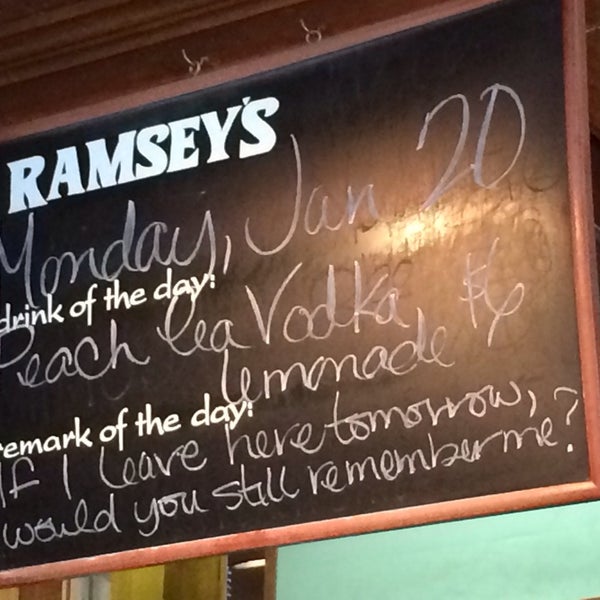 RAMSEY'S
Monday, Jan 20
drink of the day:
Peach Tea Vodka, $6
Lemonade
remark of the day:
If I leave here tomorrow,
would you still remember me?